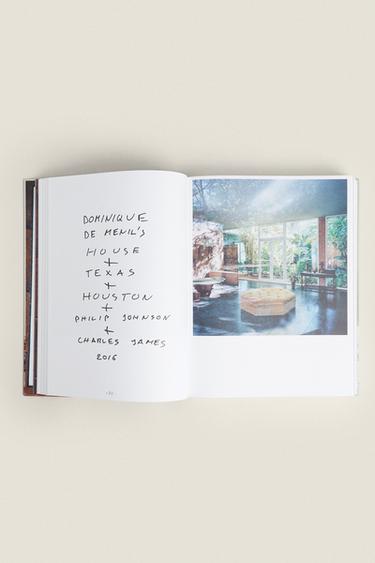 DOMINIQUE
DE MENIL'S
HOUSE
+
TEXAS
+
HOUSTON
+
PHILIP JOHNSON
+
CHARLES JAMES
2016